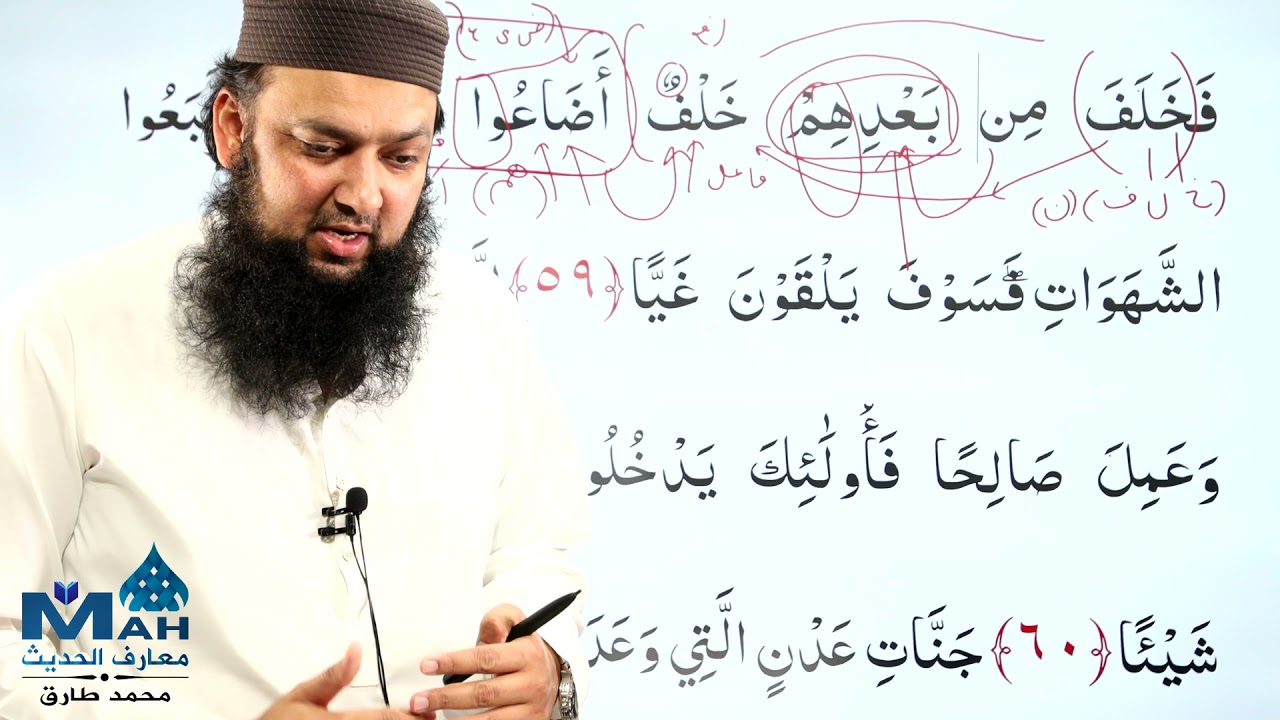 فَخَلَفَ مِن بَعْدِهِمْ خَلْفٌ أَضَاعُوا
الشَّهَوَاتِ ۖ فَسَوْفَ يَلْقَوْنَ غَيًّا ﴿٥٩﴾
وَعَمِلَ صَالِحًا فَأُولَٰئِكَ
شَيْئًا ﴿٦٠﴾ جَنَّاتِ عَدْنٍ الَّتِي
(خ ل ف) (ن)
فاعل
(ض ی ع)
(هم)
MAH
معارف الحدیث
محمد طارق